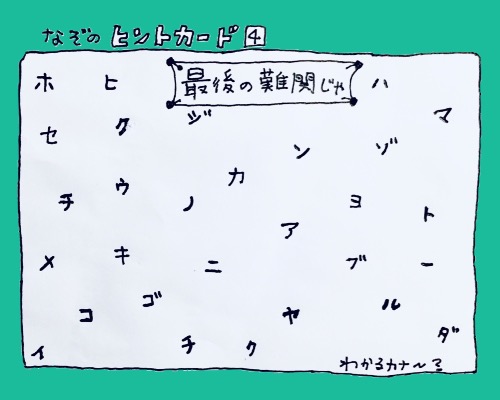 なぞの ヒントカード 4
最後の難関じゃ
ホ ヒ ハ
セ ク ジ ン ゾ マ
チ ウ ノ カ ヨ ト
メ キ ニ ア ブ ー
コ ゴ ヤ ル
イ チ ク ダ
わかるカナ〜る